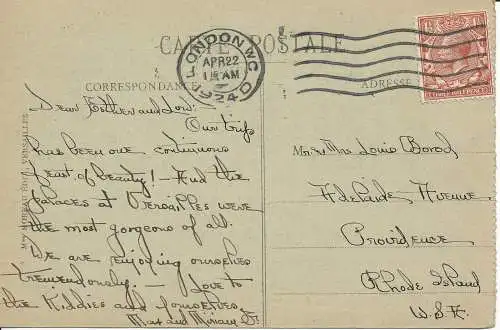 CARTE POSTALE
CORRESPONDANCE
ADRESSE
LONDON W.C.
APR 22
1 15 AM
1924
THREE HALF PENCE
Dear Esther and Lou:
Our trip
has been one continuous
feast of beauty! – And the
palaces at Versailles were
the most gorgeous of all.
We are enjoying ourselves
tremendously. – Love to
the Kiddies and yourselves.
Max and Miriam
Mr & Mrs Louis Borod
Adelaide Avenue
Providence
Rhode Island
U.S.A.